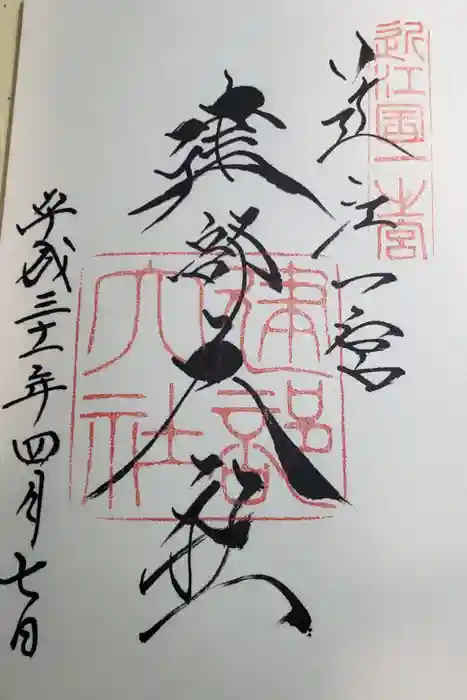 近江國一之宮
近江一宮
建部大社
建部大社
平成三十一年四月七日